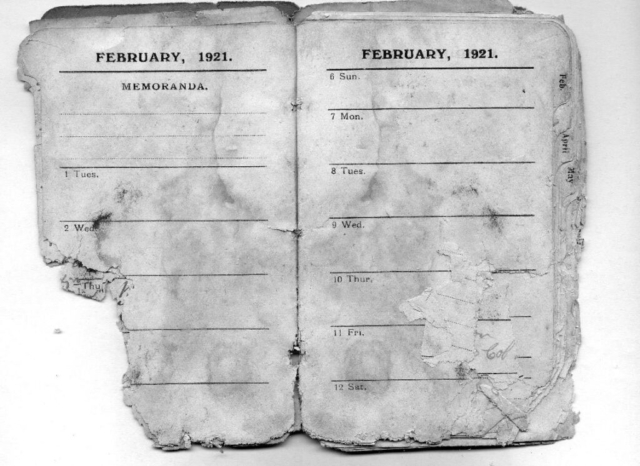 FEBRUARY, 1921.
MEMORANDA.
1 Tues.
2 Wed.
Thu.
FEBRUARY, 1921.
6 Sun.
7 Mon.
8 Tues.
9 Wed.
10 Thur.
11 Fri.
12 Sat.
Feb
April
May